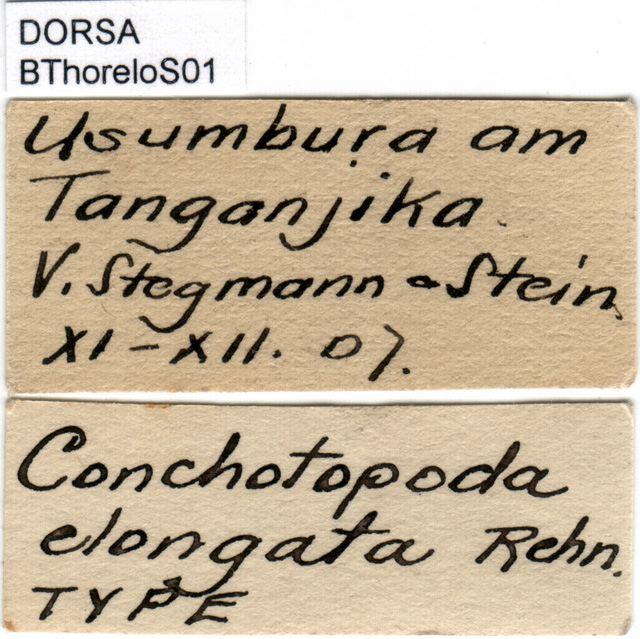 DORSA
BThoreloS01
Usumbura am
Tanganjika.
V. Stegmann a Stein
XI-XII. 07.
Conchotopoda
elongata Rehn.
TYPE